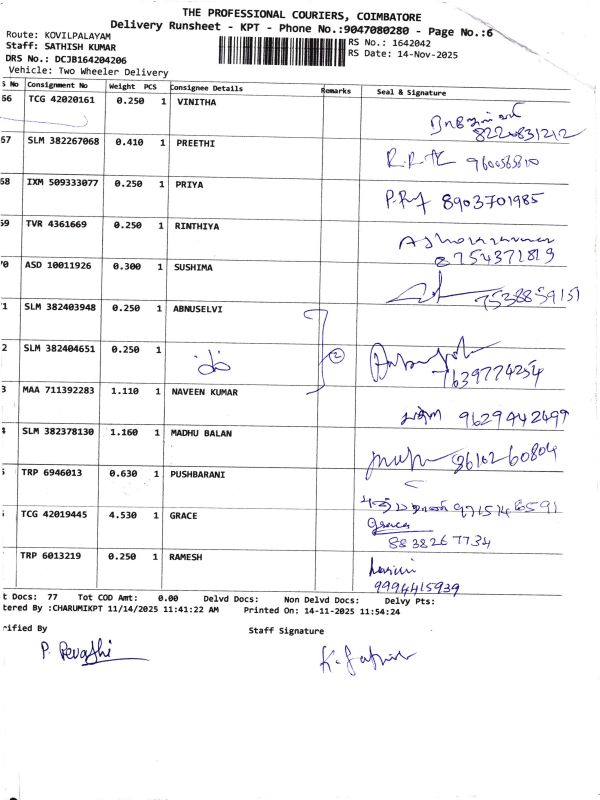 THE PROFESSIONAL COURIERS, COIMBATORE
Delivery Runsheet - KPT - Phone No.:9047080280 - Page No.:6
Route: KOVILPALAYAM
Staff: SATHISH KUMAR
RS No.: 1642042
DRS No.: DCJB164204206
RS Date: 14-Nov-2025
Vehicle: Two Wheeler Delivery
S No Consignment No Weight PCS Consignee Details Remarks Seal & Signature
66 TCG 42020161 0.250 1 VINITHA
8220831212
67 SLM 382267068 0.410 1 PREETHI
68 IXM 509333077 0.250 1 PRIYA 8903701985
69 TVR 4361669 0.250 1 RINTHIYA
8754371819
70 ASD 10011926 0.300 1 SUSHIMA
7538859151
1 SLM 382403948 0.250 1 ABNUSELVI
2 SLM 382404651 0.250 1 2
7639774254
3 MAA 711392283 1.110 1 NAVEEN KUMAR
9629442499
4 SLM 382378130 1.160 1 MADHU BALAN
TRP 6946013 0.630 1 PUSHBARANI
TCG 42019445 4.530 1 GRACE Grace
8838267734
TRP 6013219 0.250 1 RAMESH
9994415939
t Docs: 77 Tot COD Amt: 0.00 Delvd Docs: Non Delvd Docs: Delvy Pts:
tered By :CHARUMIKPT 11/14/2025 11:41:22 AM Printed On: 14-11-2025 11:54:24
rified By Staff Signature
P. Revathi